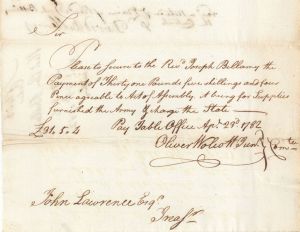 Sir
Please to secure to the Rev.d Joseph Bellamy the
Payment of Thirty one Pounds five shillings and four
Pence agreable to Act of Assembly, it being for Supplies
furnished the Army & charge the State
£31.5.4 Pay Table Office Apr. 29th 1782
Oliver Wolcott Jun.r } Com.te
John Lawrence Esq.r
Treas.r